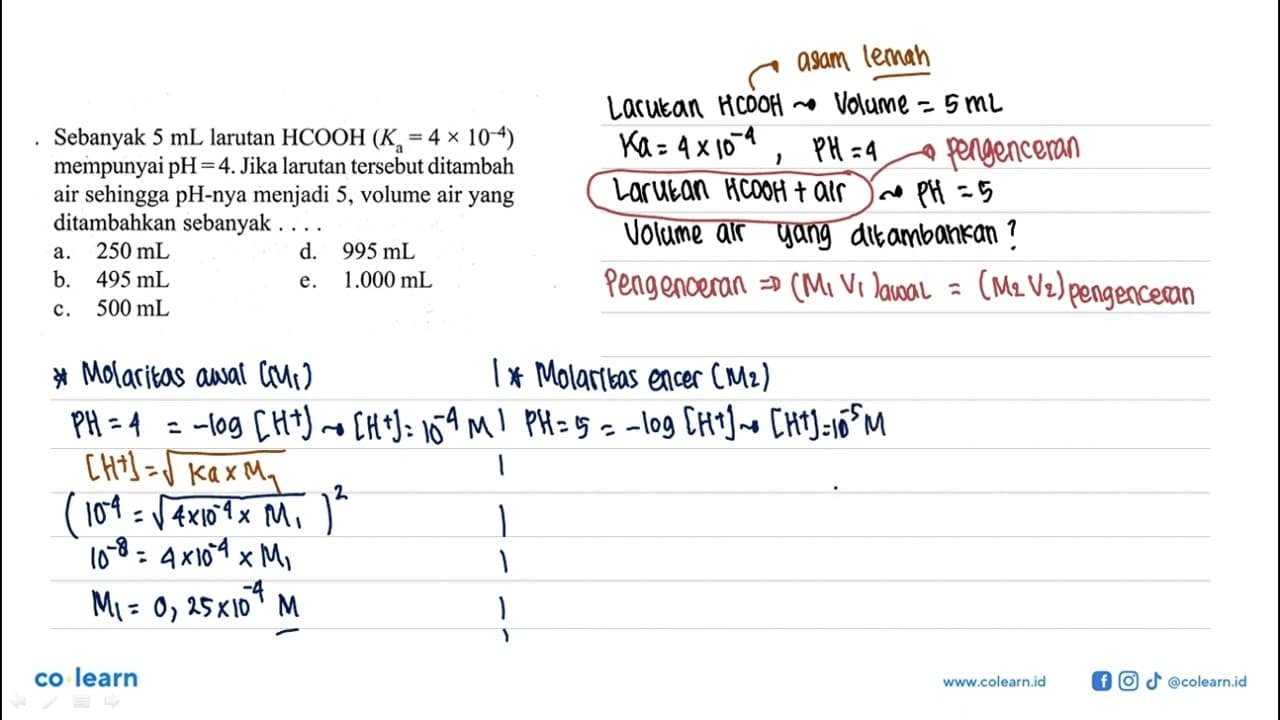 . Sebanyak 5 mL larutan HCOOH (Kₐ = 4 × 10⁻⁴)
mempunyai pH = 4. Jika larutan tersebut ditambah
air sehingga pH-nya menjadi 5, volume air yang
ditambahkan sebanyak . . . .
a. 250 mL d. 995 mL
b. 495 mL e. 1.000 mL
c. 500 mL
asam lemah
Larutan HCOOH ⇝ Volume = 5 mL
Ka = 4 × 10⁻⁴ , PH = 4 → pengenceran
Larutan HCOOH + air ⇝ PH = 5
Volume air yang ditambahkan ?
Pengenceran ⇒ (M₁ V₁)awal = (M₂ V₂)pengenceran
* Molaritas awal (M₁)
PH = 4 = -log [H+] ⇝ [H+] = 10⁻⁴ M
[H+] = √Ka × M₁
(10⁻⁴ = √4×10⁻⁴ × M₁)²
10⁻⁸ = 4×10⁻⁴ × M₁
M₁ = 0,25×10⁻⁴ M
* Molaritas encer (M₂)
PH = 5 = -log [H+] ⇝ [H+] = 10⁻⁵ M
co learn
www.colearn.id
@colearn.id